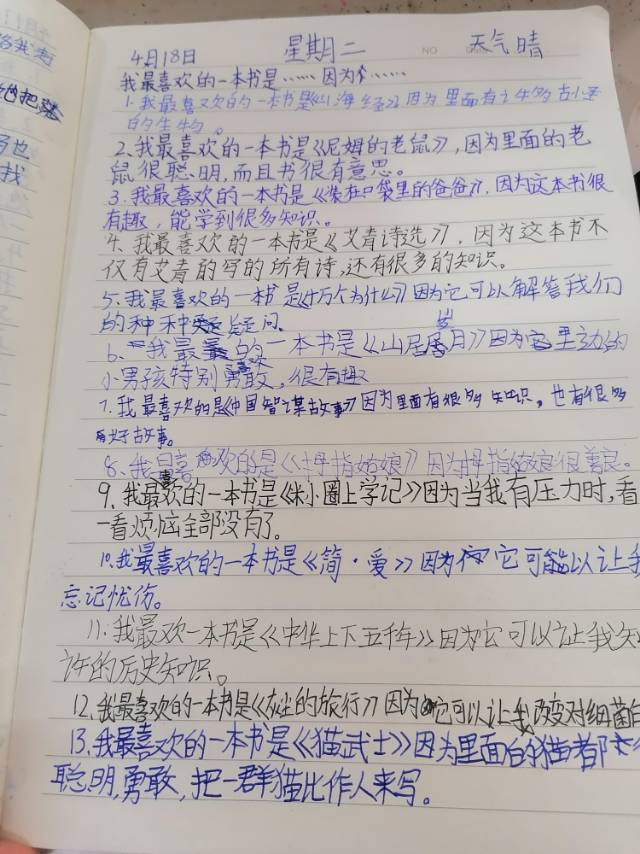 络我走
他把桑
多也
找
4月18日 星期二 NO 天气晴
我最喜欢的一本书是……因为……
1. 我最喜欢的一本书是《山海经》因为里面有许多古怪
的生物。
2. 我最喜欢的一本书是《尼姆的老鼠》,因为里面的老
鼠很聪明,而且书很有意思。
3. 我最喜欢的一本书是《装在口袋里的爸爸》,因为这本书很
有趣,能学到很多知识。
4. 我最喜欢的一本书是《艾青诗选》,因为这本书不
仅有艾青的写的所有诗,还有很多的知识。
5. 我最喜欢的一本书是《十万个为什么》因为它可以解答我们
的种种疑问。
6. 我最喜欢的一本书是《山居岁月》因为里边的
小男孩特别勇敢,很有趣
7. 我最喜欢的是《中国智谋故事》因为里面有很多知识,也有很多
故事。
8. 我喜欢的是《拇指姑娘》因为拇指姑娘很善良。
9. 我最欢的一本书是《米小圈上学记》因为当我有压力时,看
一看烦恼全部没有了。
10. 我最喜欢的一本书是《简·爱》因为它可能以让我
忘记忧伤。
11. 我最欢一本书是《中华上下五千年》因为它可以让我知
许的历史知识。
12. 我最喜欢的一本书是《灰尘的旅行》因为它可以让我改变对细菌白
13. 我最喜欢的一本书是《猫武士》因为里面的猫都
聪明,勇敢,把一群猫比作人来写。